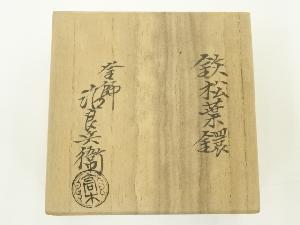 鉄松葉鐶
釜師
治良兵衛
高木